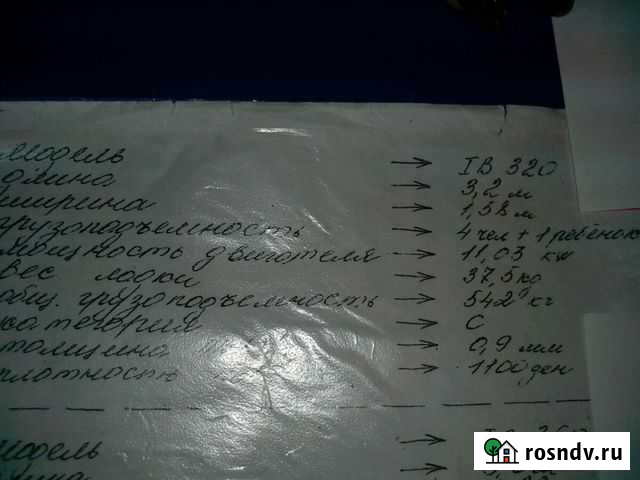 модель → IB 320
длина → 3,2 м
ширина → 1,58 м
грузоподъемность → 4 чел + 1 ребёнок
мощность двигателя → 11,03 кw
вес лодки → 37,5 кг
общ. грузоподъемность → 542 кг
категория → C
толщина → 0,9 мм
плотность → 1100 ден
модель →
rosndv.ru